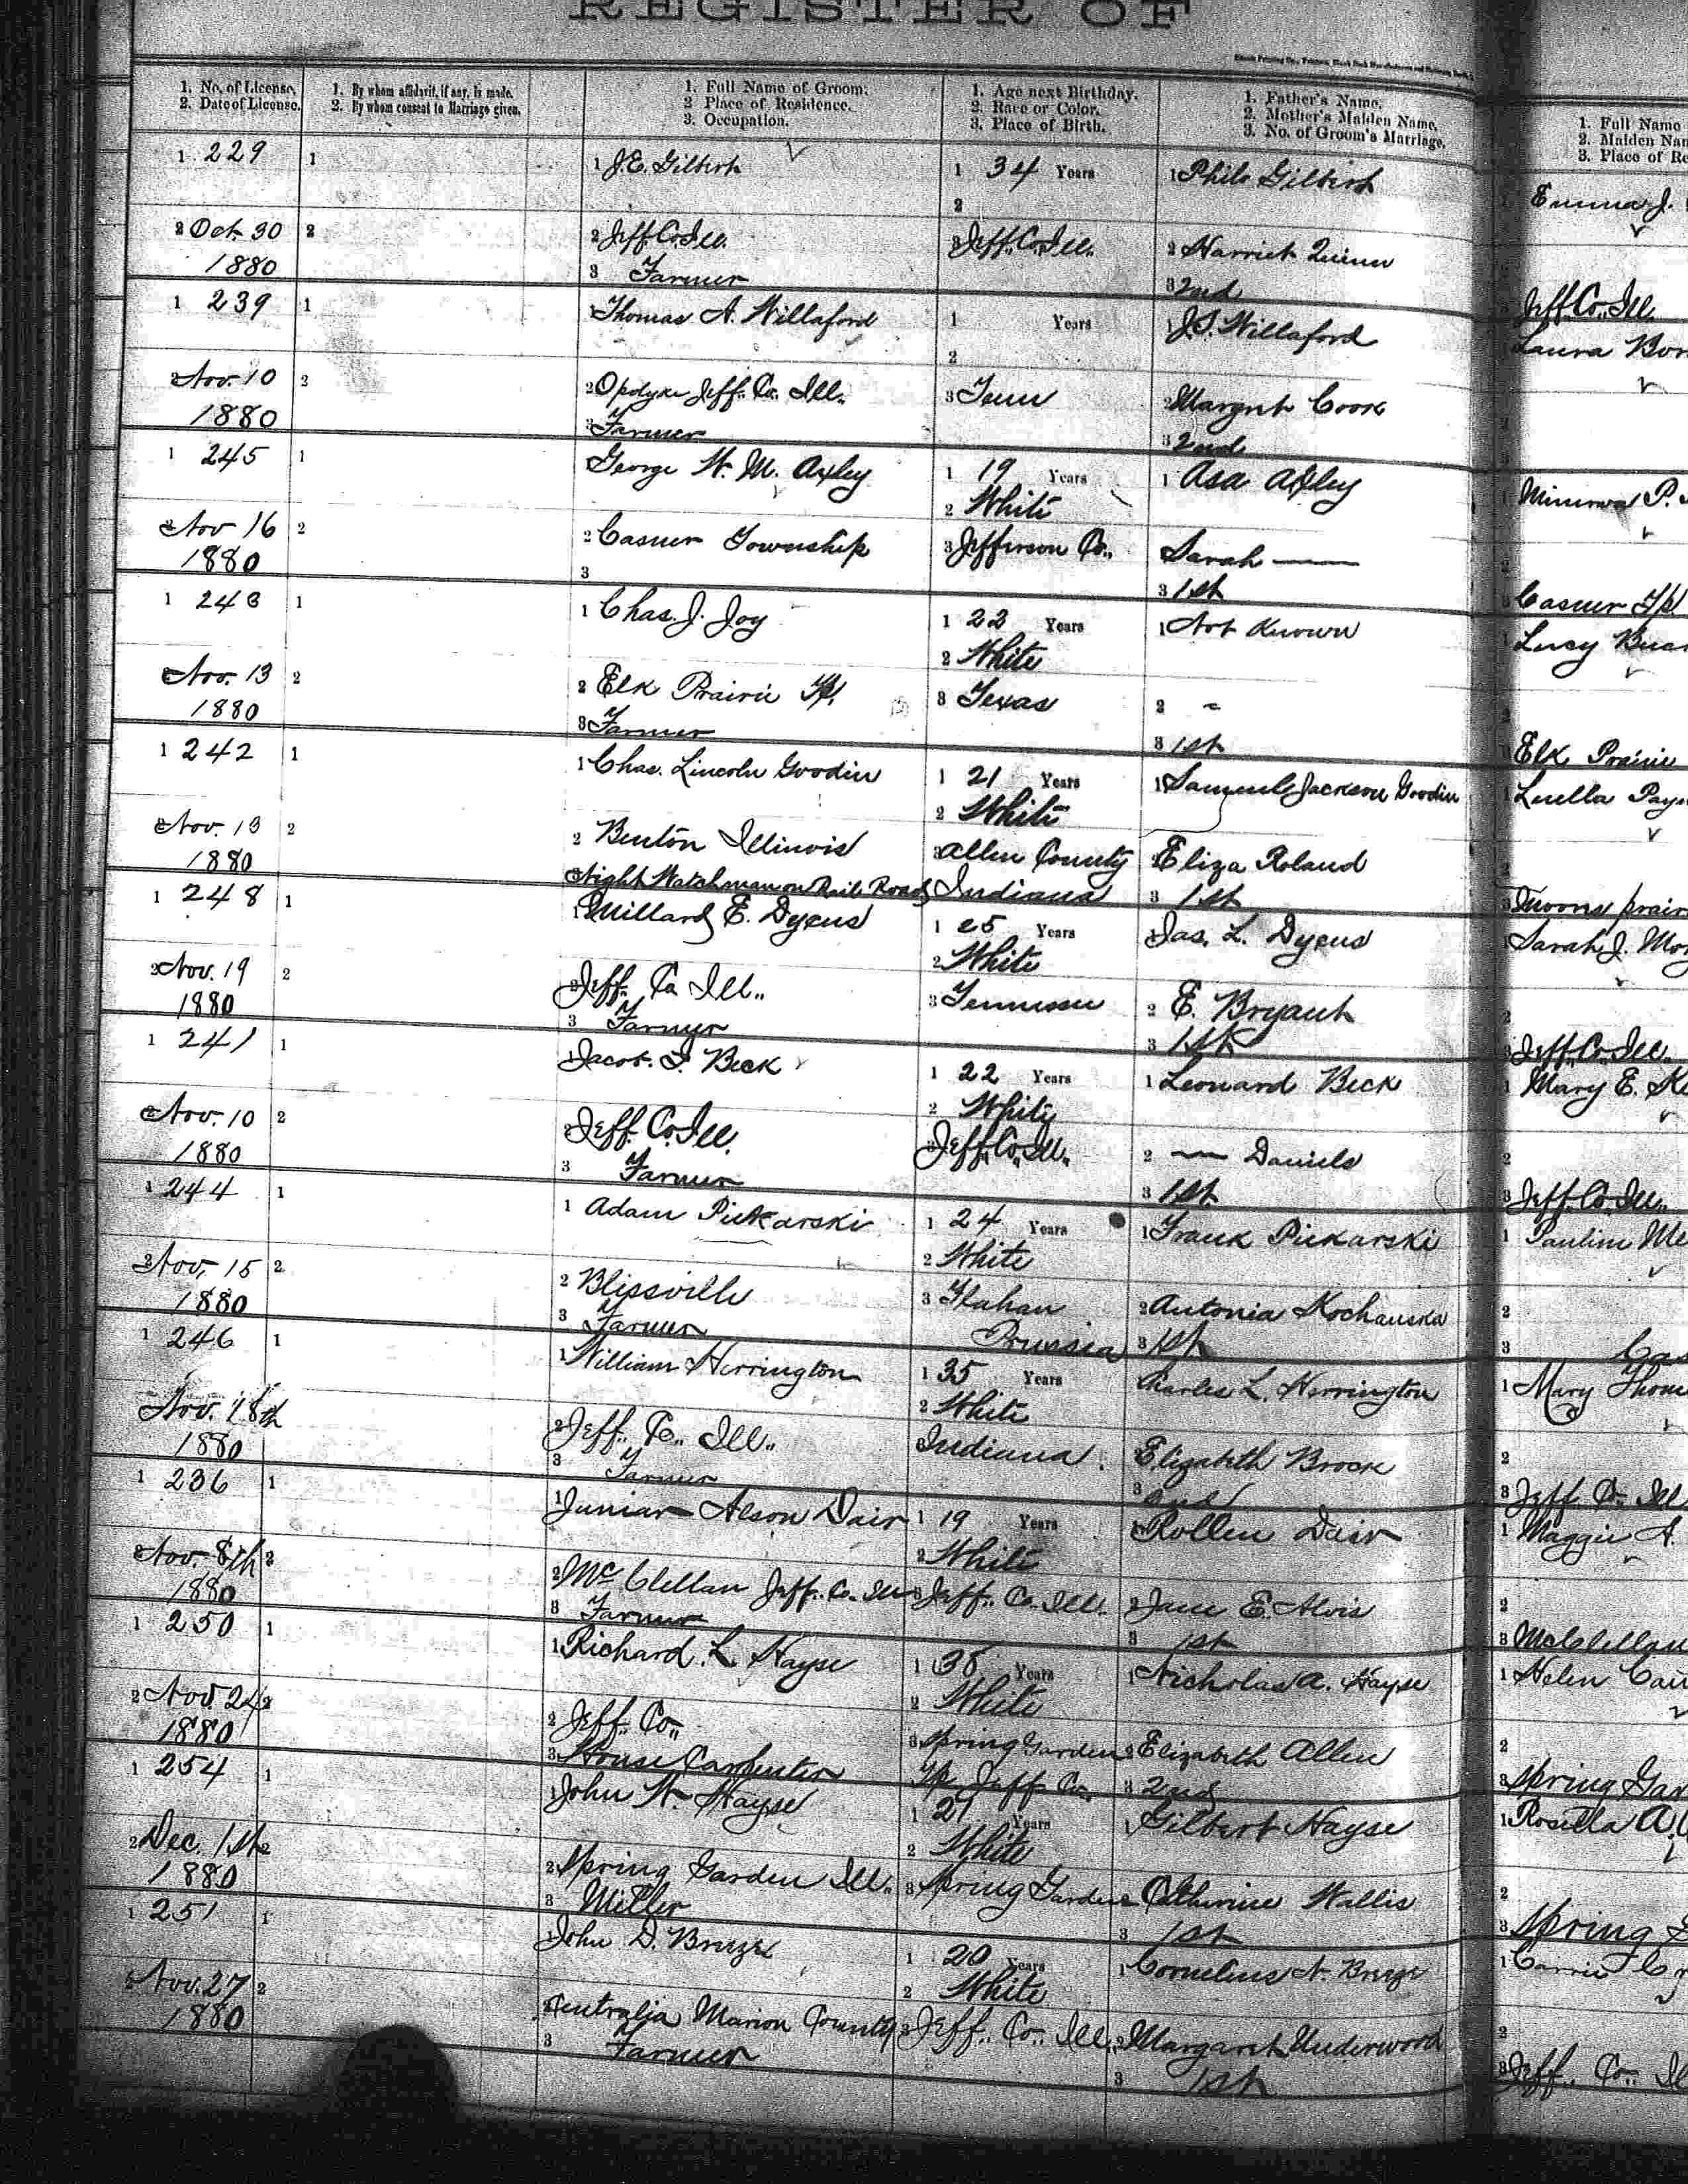 REGISTER OF
1. No. of License. 1. By whom affidavit, if any, is made. 1. Full Name of Groom. 1. Age next Birthday. 1. Father's Name. 1. Full Name
2. Date of License. 2. By whom consent to Marriage given. 2 Place of Residence. 2. Race or Color. 2. Mother's Maiden Name. 2. Maiden Nam
3. Occupation. 3. Place of Birth. 3. No. of Groom's Marriage. 3. Place of Re
1 229 1 1 J.E. Gilbert 1 34 Years 1 Philo Gilbert Emma J.
2
2 Oct. 30 2 2 Jeff. Co. Ill. 3 Jeff. Co. Ill. 2 Harriet
1880 3 Farmer 3 2nd Jeff. Co. Ill.
1 239 1 1 Thomas A. Willaford 1 Years 1 J.S. Willaford Laura
2
2 Nov. 10 2 2 Opdyke Jeff. Co. Ill. 3 Tenn 2 Margret Cook
1880 3 Farmer 3 2nd
1 245 1 George W. M. Axley 1 19 Years 1 Asa Axley P.
2 White
2 Nov 16 2 2 Casner Township 3 Jefferson Co. Sarah —
1880 3 3 1st Casner Tp
1 243 1 1 Chas. J. Joy 1 22 Years 1 Not Known Lucy
2 White
Nov. 13 2 2 Elk Prairie Tp. 3 Texas 2 -
1880 3 Farmer 3 1st Elk Prairie
1 242 1 1 Chas. Lincoln Goodin 1 21 Years 1 Samuel Jackson Goodin Luella Pay
2 White
Nov. 13 2 2 Benton Illinois 3 Allen County Eliza Roland
1880 Night Watchman on Rail Road Indiana 3 1st prair
1 248 1 1 Millard E. Dycus 1 25 Years Jas. L. Dycus Sarah J.
2 White
2 Nov. 19 2 2 Jeff. Co. Ill. 3 Tennessee 2 E. Bryant
1880 3 Farmer 3 1st Jeff. Co. Ill.
1 241 1 1 Jacob. Beck 1 22 Years 1 Leonard Beck 1 Mary E.
2 White
Nov. 10 2 2 Jeff. Co. Ill. Jeff. Co. Ill. 2 — Daniels 2
1880 3 Farmer 3 1st. 3 Jeff. Co. Ill.
1 244 1 1 Adam Piekarski 1 24 Years 1 Frank Piekarski 1 Pauline Me
2 White
2 Nov. 15 2 2 Blissville 3 2 Antonia Kochanska 2
1880 3 Farmer Prussia 3 1st 3 Cas
1 246 1 1 William Herrington 1 35 Years Charles L. Herrington 1 Mary Thom
2 White
Nov. 18th 2 Jeff. Co. Ill. Indiana. Elizabeth Brock 2
1880 3 Farmer 3 2nd 3 Jeff. Co. Ill
1 236 1 1 Alson Dair 1 19 Years 1 Rollen Dair 1 Maggie A.
2 White
Nov. 8th 2 2 McClellan Jeff. Co. Ill 3 Jeff. Co. Ill. 2 Jane E. Alvis 2
1880 3 Farmer 3 1st 3 McClellan
1 250 1 1 Richard. L Hayse 1 38 Years 1 Nicholas A. Hayse 1 Helen
2 White
2 Nov. 24 2 2 Jeff. Co. 3 Spring Garden 2 Elizabeth Allen 2
1880 3 House Carpenter Tp. Jeff. Co. 3 2nd 3 Spring Gar
1 254 1 1 John W. Hayse 1 21 Years 1 Gilbert Hayse 1 Rosetta A.
2 White
2 Dec. 1st 2 2 Spring Garden Ill. 3 Spring Garden 2 Catherine Wallis 2
1880 3 Miller 3 1st 3 Spring
1 251 1 1 John D. Breeze 1 20 Years 1 Cornelius N. Breeze 1 Carrie
2 White
2 Nov. 27 2 2 Centralia Marion County 3 Jeff. Co. Ill. 2 Margaret Underwood 2
1880 3 Farmer 3 1st 3 Jeff. Co. Il